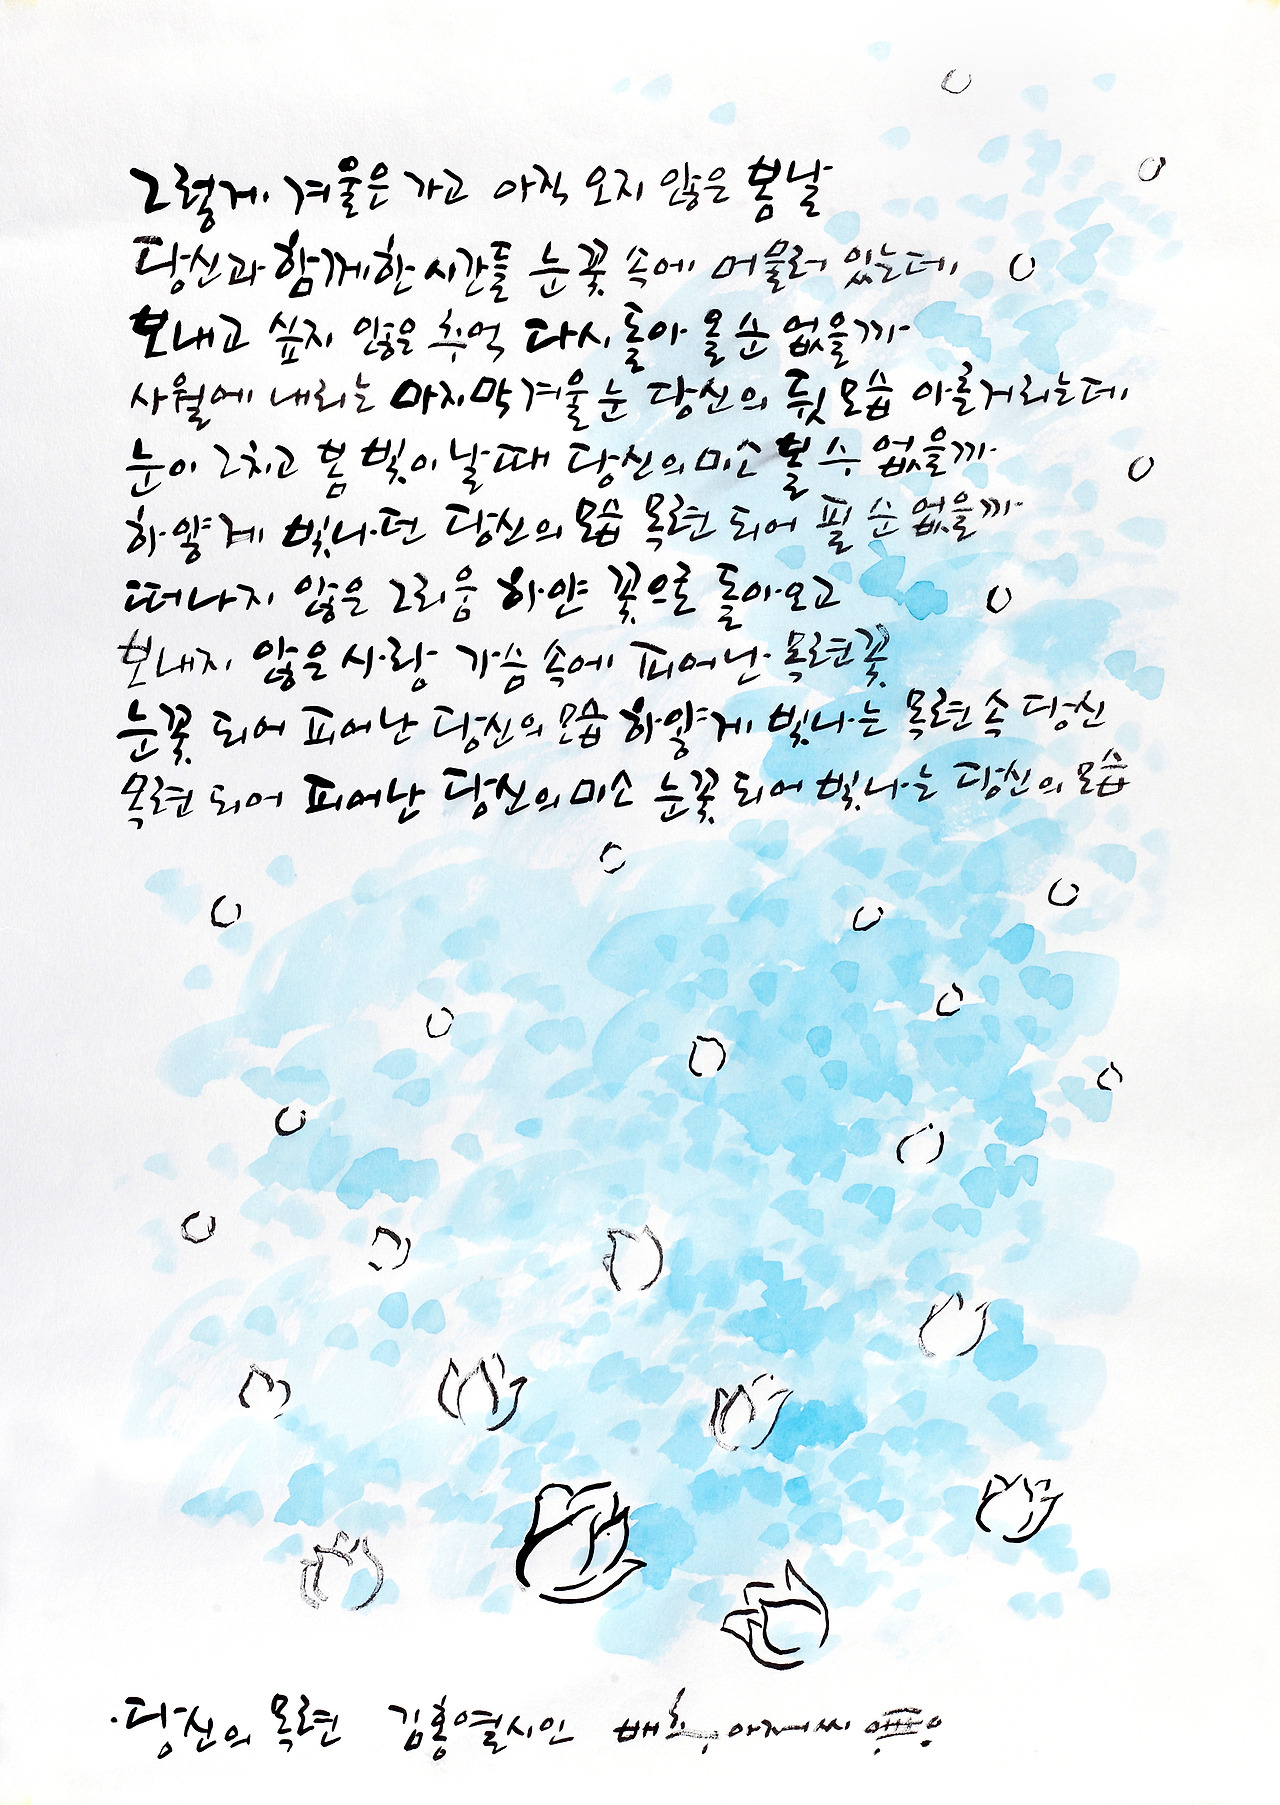 그렇게 겨울은 가고 아직 오지 않은 봄날
당신과 함께한 시간들 눈꽃 속에 머물러 있는데
보내고 싶지 않은 추억 다시 돌아 올 순 없을까
사월에 내리는 마지막 겨울 눈 당신의 뒷모습 아른거리는데
눈이 그치고 봄 빛이 날 때 당신의 미소 볼 수 없을까
하얗게 빛나던 당신의 모습 목련 되어 필 순 없을까
떠나지 않은 그리움 하얀 꽃으로 돌아오고
보내지 않은 사랑 가슴 속에 피어난 목련꽃
눈꽃 되어 피어난 당신의 모습 하얗게 빛나는 목련 속 당신
목련 되어 피어난 당신의 미소 눈꽃 되어 빛나는 당신의 모습
·당신의 목련 김홍열시인